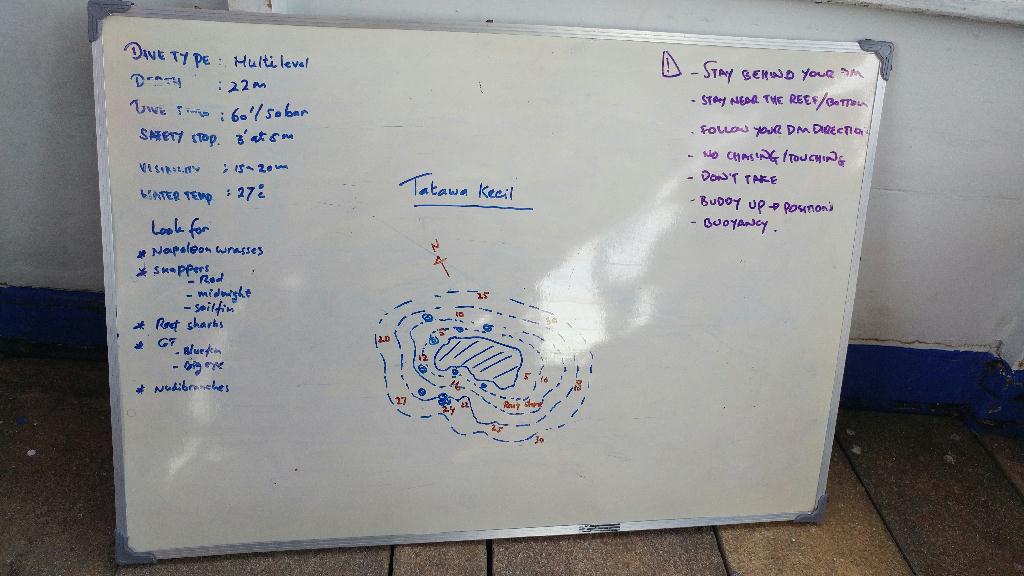 DIVE TYPE : Multilevel
DEPTH : 22m
DIVE : 60'/50bar
SAFETY STOP. 3' at 5m
VISIBILITY : 15-20m
WATER TEMP : 27°C
Look for
* Napoleon wrasses
* Snappers
- Red
- midnight
- sailfin
* Reef sharks
* GT
- Bluefin
- Big eye
* Nudibranches
Tatawa Kecil
N
25
10
30
20
5
12
5
10
16
27
24
22
25
30
! - STAY BEHIND YOUR DM
- STAY NEAR THE REEF/BOTTOM
- FOLLOW YOUR DM DIRECTION
- NO CHASING/TOUCHING
- DON'T TAKE
- BUDDY UP → POSITIONS
- BUOYANCY.